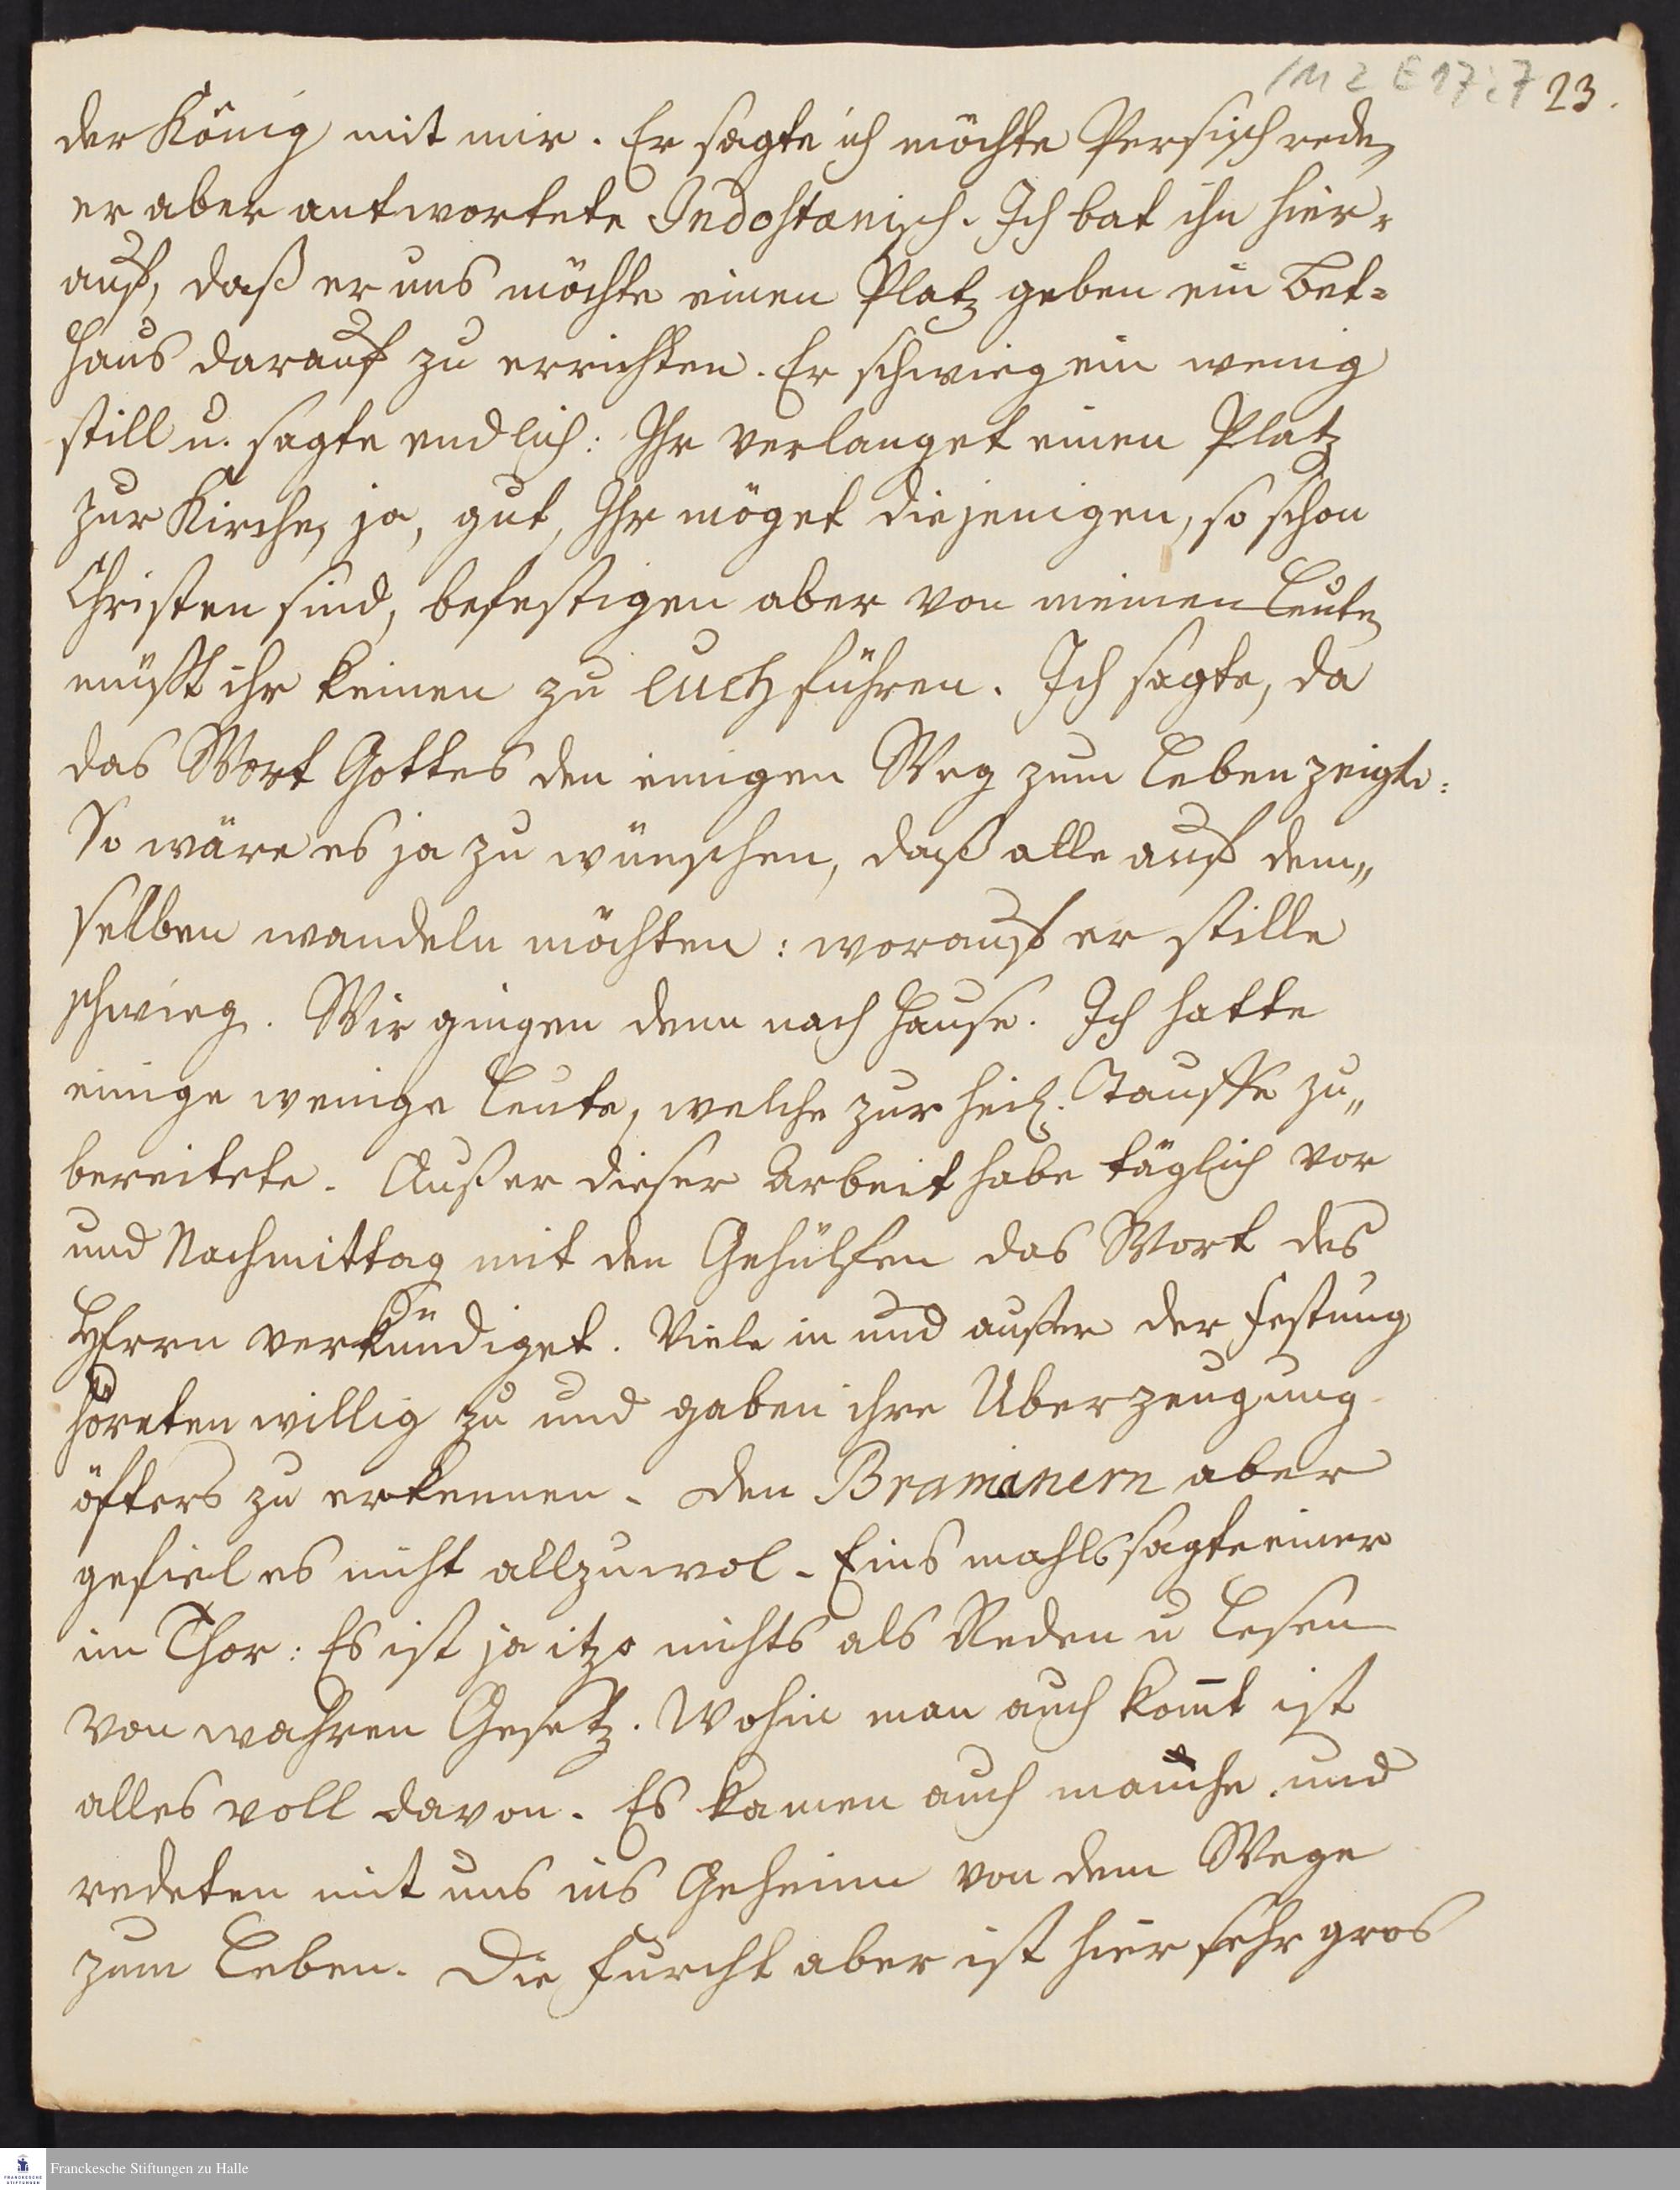 1M 2 E 17:7 23.
der König mit mir. Er sagte ich möchte Persisch reden,
er aber antwortete Indostanisch. Ich bat ihn hier-
auf, daß er uns möchte einen Platz geben ein Bet-
haus darauf zu errichten. Er schwieg ein wenig
still u. sagte endlich: Ihr verlanget einen Platz
zur Kirche, ja, gut, Ihr möget diejenigen, so schon
Christen sind, befestigen aber von meinen Leuten
müßt ihr keinen zu euch führen. Ich sagte, da
das Wort Gottes den einigen Weg zum Leben zeigte:
So wäre es ja zu wünschen, daß alle auf dem„
selben wandeln möchten: worauf er stille
schwieg. Wir gingen denn nach Hause. Ich hatte
einige wenige Leute, welche zur heil. Tauffe zu„
bereitete. Außer dieser Arbeit habe täglich vor
und Nachmittag mit den Gehülfen das Wort des
HErrn verkündiget. Viele in und außer der Festung
höreten willig zu und gaben ihre Uberzeugung
öfters zu erkennen. Den Braminern aber
gefiel es nicht allzuwol. Eins mahls sagte einer
im Thor: Es ist ja itzo nichts als Reden u Lesen
von wahren Gesetz. Wohin man auch kom̄t ist
alles voll davon. Es kamen auch manche und
redeten mit uns ins Geheim von dem Wege
zum Leben. Die Furcht aber ist hier sehr gros
Franckesche Stiftungen zu Halle
FRANCKESCHE
STIFTUNGEN